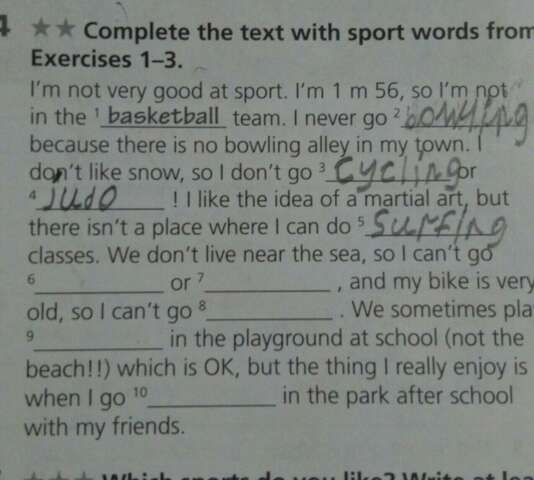 4 ★★ Complete the text with sport words from
Exercises 1–3.
I'm not very good at sport. I'm 1 m 56, so I'm not
in the 1 basketball team. I never go 2 bowling
because there is no bowling alley in my town. I
don't like snow, so I don't go 3 cycling or
4 Judo ! I like the idea of a martial art, but
there isn't a place where I can do 5 Surfing
classes. We don't live near the sea, so I can't go
6 ____________ or 7 ____________ , and my bike is very
old, so I can't go 8 ____________ . We sometimes pla
9 ____________ in the playground at school (not the
beach!!) which is OK, but the thing I really enjoy is
when I go 10 ____________ in the park after school
with my friends.
★★★ Which sports do you like? Write at lea